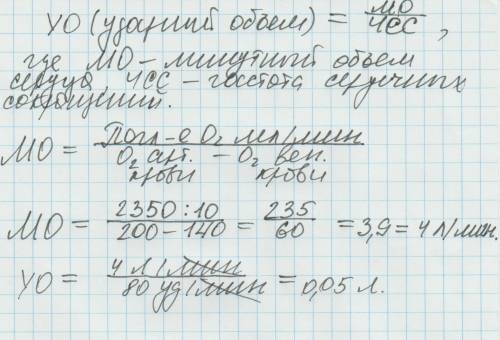 УО (ударний объем) = МО / ЧСС ,
где МО – минутный объем
сердца, ЧСС – частота сердечных
сокращений.
МО = Погл-е O₂ мл/мин / O₂ арт. крови – O₂ вен. крови
МО = 2350 : 10 / 200 – 140 = 235 / 60 = 3,9 = 4 л/мин.
УО = 4 л/мин / 80 уд/мин = 0,05 л.